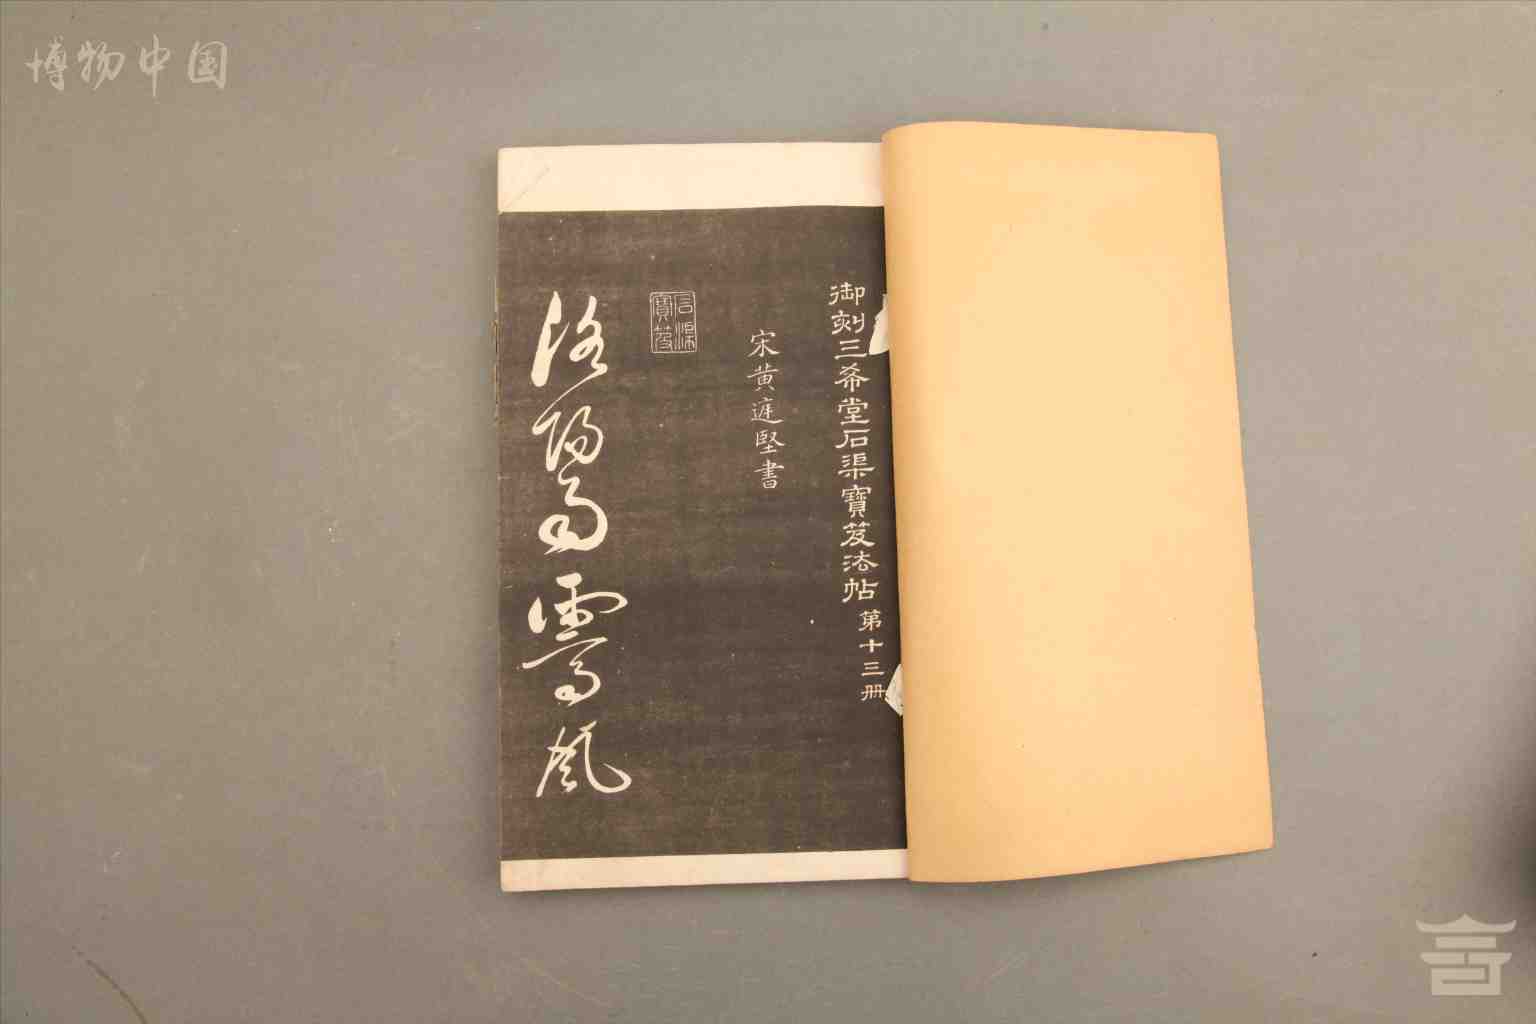 博物中国
御刻三希堂石渠寶笈法帖 第十三册
宋黃庭堅書
石渠寶笈
洛陽 風